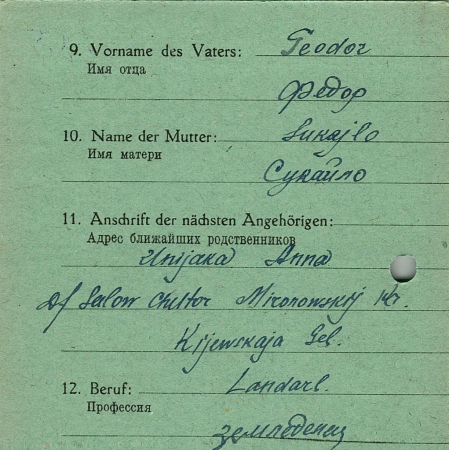 9. Vorname des Vaters: Teodor
Имя отца
Федор
10. Name der Mutter: Sukajlo
Имя матери
Сукайло
11. Anschrift der nächsten Angehörigen:
Адрес ближайших родственников
Unijaka Anna
Df Salow Chutor Mironowskij Kr.
Kijewskaja Geb.
12. Beruf: Landarb.
Профессия
земледелец